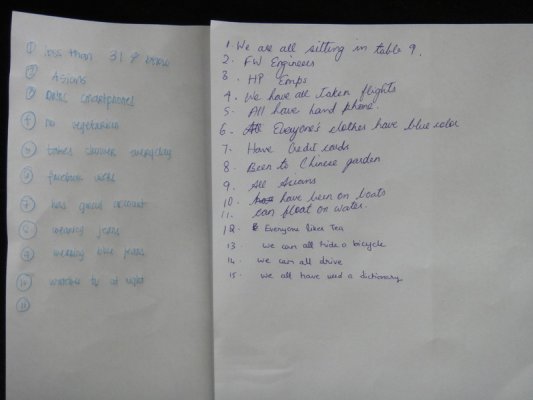 ① less than 31 & below
② Asians
③ owns smartphones
④ no vegetarian
⑤ takes shower everyday
⑥ facebook users
⑦ has gmail account
⑧ wearing jeans
⑨ wearing blue jeans
⑩ watches tv at night
⑪
1. We are all sitting in table 9.
2. FW Engineers
3. HP Emps.
4. We have all taken flights
5. All have hand phone.
6. Everyone's clothes have blue color
7. Have Credit cards
8. Been to Chinese garden
9. All Asians
10. have been on boats
11. can float on water.
12. Everyone likes Tea
13. we can all ride a bicycle
14. we can all drive
15. we all have used a dictionary